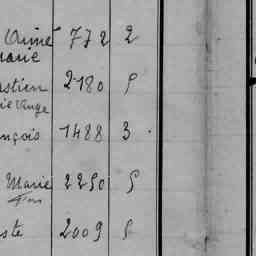 Aimé 772 2
Marie
astien 2180 5
ie Ange
nçois 1488 3
Marie 2250 5
Fçois
ste 2009 5